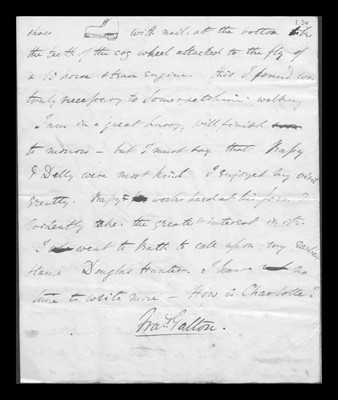 shoes with nails at the bottom like
the teeth of the cog wheel attached to the fly of
a 15 horse steam engine. this I found was
truly necessary to Somersetshire walking
I am in a great hurry, will finish
to morrow – but I must say that
& Delly were most kind. I enjoyed my visit
greatly. works hard at his farm &
evidently takes the greatest interest in it.
I went to Bath to call upon my
Douglas Hunter. I have no
time to write more – How is Charlotte?
Fras Galton.